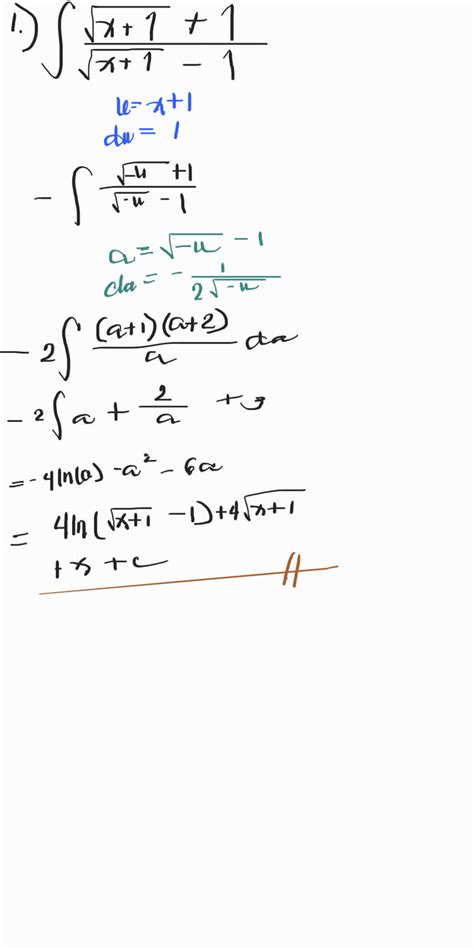 1.) ∫ (√(x+1) + 1)/(√(x+1) - 1)
u = x+1
du = 1
- ∫ (√(-u) +1)/(√(-u) - 1)
a = √(-u) - 1
da = - 1/(2√(-u))
- 2∫ ((a+1)(a+2))/a da
- 2∫ a + 2/a + 3
= -4ln(a) - a² - 6a
= 4ln(√(x+1) - 1) + 4√(x+1)
+ x + c //